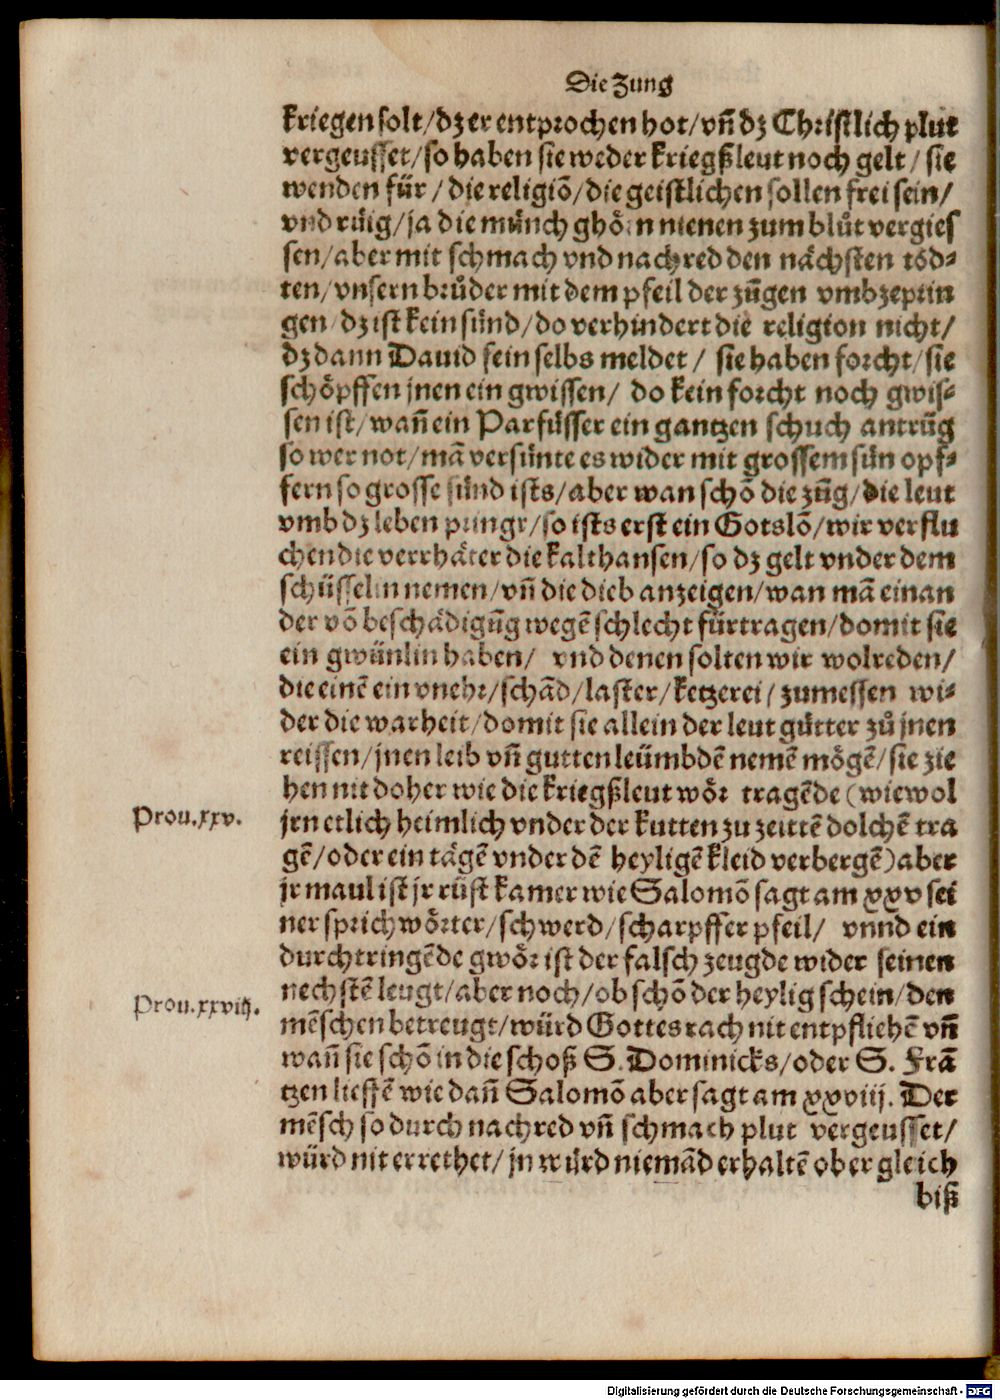 Die Zung
kriegen solt/dz er entprochen hot/vñ dz Christlich plut
vergeusset/so haben sie weder kriegßleut noch gelt/sie
wenden für/die religiõ/die geistlichen sollen frei sein/
vnd rüig/ja die münch ghörn nienen zum blůt vergies
sen/aber mit schmach vnd nachred den nächsten töd-
ten/vnsern brůder mit dem pfeil der züngen vmbzeprin
gen/dz ist kein sünd/do verhindert die religion nicht/
dz dann Dauid sein selbs meldet/ sie haben forcht/sie
schöpffen jnen ein gwissen/ do kein forcht noch gwis-
sen ist/wañ ein Parfüsser ein gantzen schuch antrüg
so wer not/mã versünte es wider mit grossem sün opf-
fern so grosse sünd ists/aber wan schõ die zũg/die leut
vmb dz leben pringt/so ists erst ein Gotslõ/wir verflu
chen die verrhäter die kalthansen/so dz gelt vnder dem
schüsselin nemen/vñ die dieb anzeigen/wan mã einan
der võ beschädigũg wegẽ schlecht fürtragen/domit sie
ein gwünlin haben/ vnd denen solten wir wolreden/
die einẽ ein vnehr/schãd/laster/ketzerei/zumessen wi-
der die warheit/domit sie allein der leut gütter zů jnen
reissen/jnen leib vñ gutten leümbdẽ nemẽ mögẽ/sie zie
hen nit doher wie die kriegßleut wör tragẽde (wiewol
jrn etlich heimlich vnder der kutten zu zeittẽ dolchẽ tra
gẽ/oder ein tägẽ vnder dẽ heyligẽ kleid verbergẽ) aber
jr maul ist jr rüst kamer wie Salomõ sagt am xxv sei
ner sprichwörter/schwerd/scharpffer pfeil/ vnnd ein
durchtringẽde gwör ist der falsch zeugde wider seinen
nechstẽ leugt/aber noch/ob schõ der heylig schein/den
mẽschen betreugt/würd Gottes rach nit entpfliehẽ vñ
wañ sie schõ in die schoß S. Dominicks/oder S. Frã
tzen lieffẽ wie dañ Salomõ aber sagt am xxviij. Der
mẽsch so durch nachred vñ schmach plut vergeusset/
würd nit errethet/jn würd niemãd erhaltẽ ober gleich
biß
Prou.xxv.
Prou.xxviij.
Digitalisierung gefördert durch die Deutsche Forschungsgemeinschaft - DFG